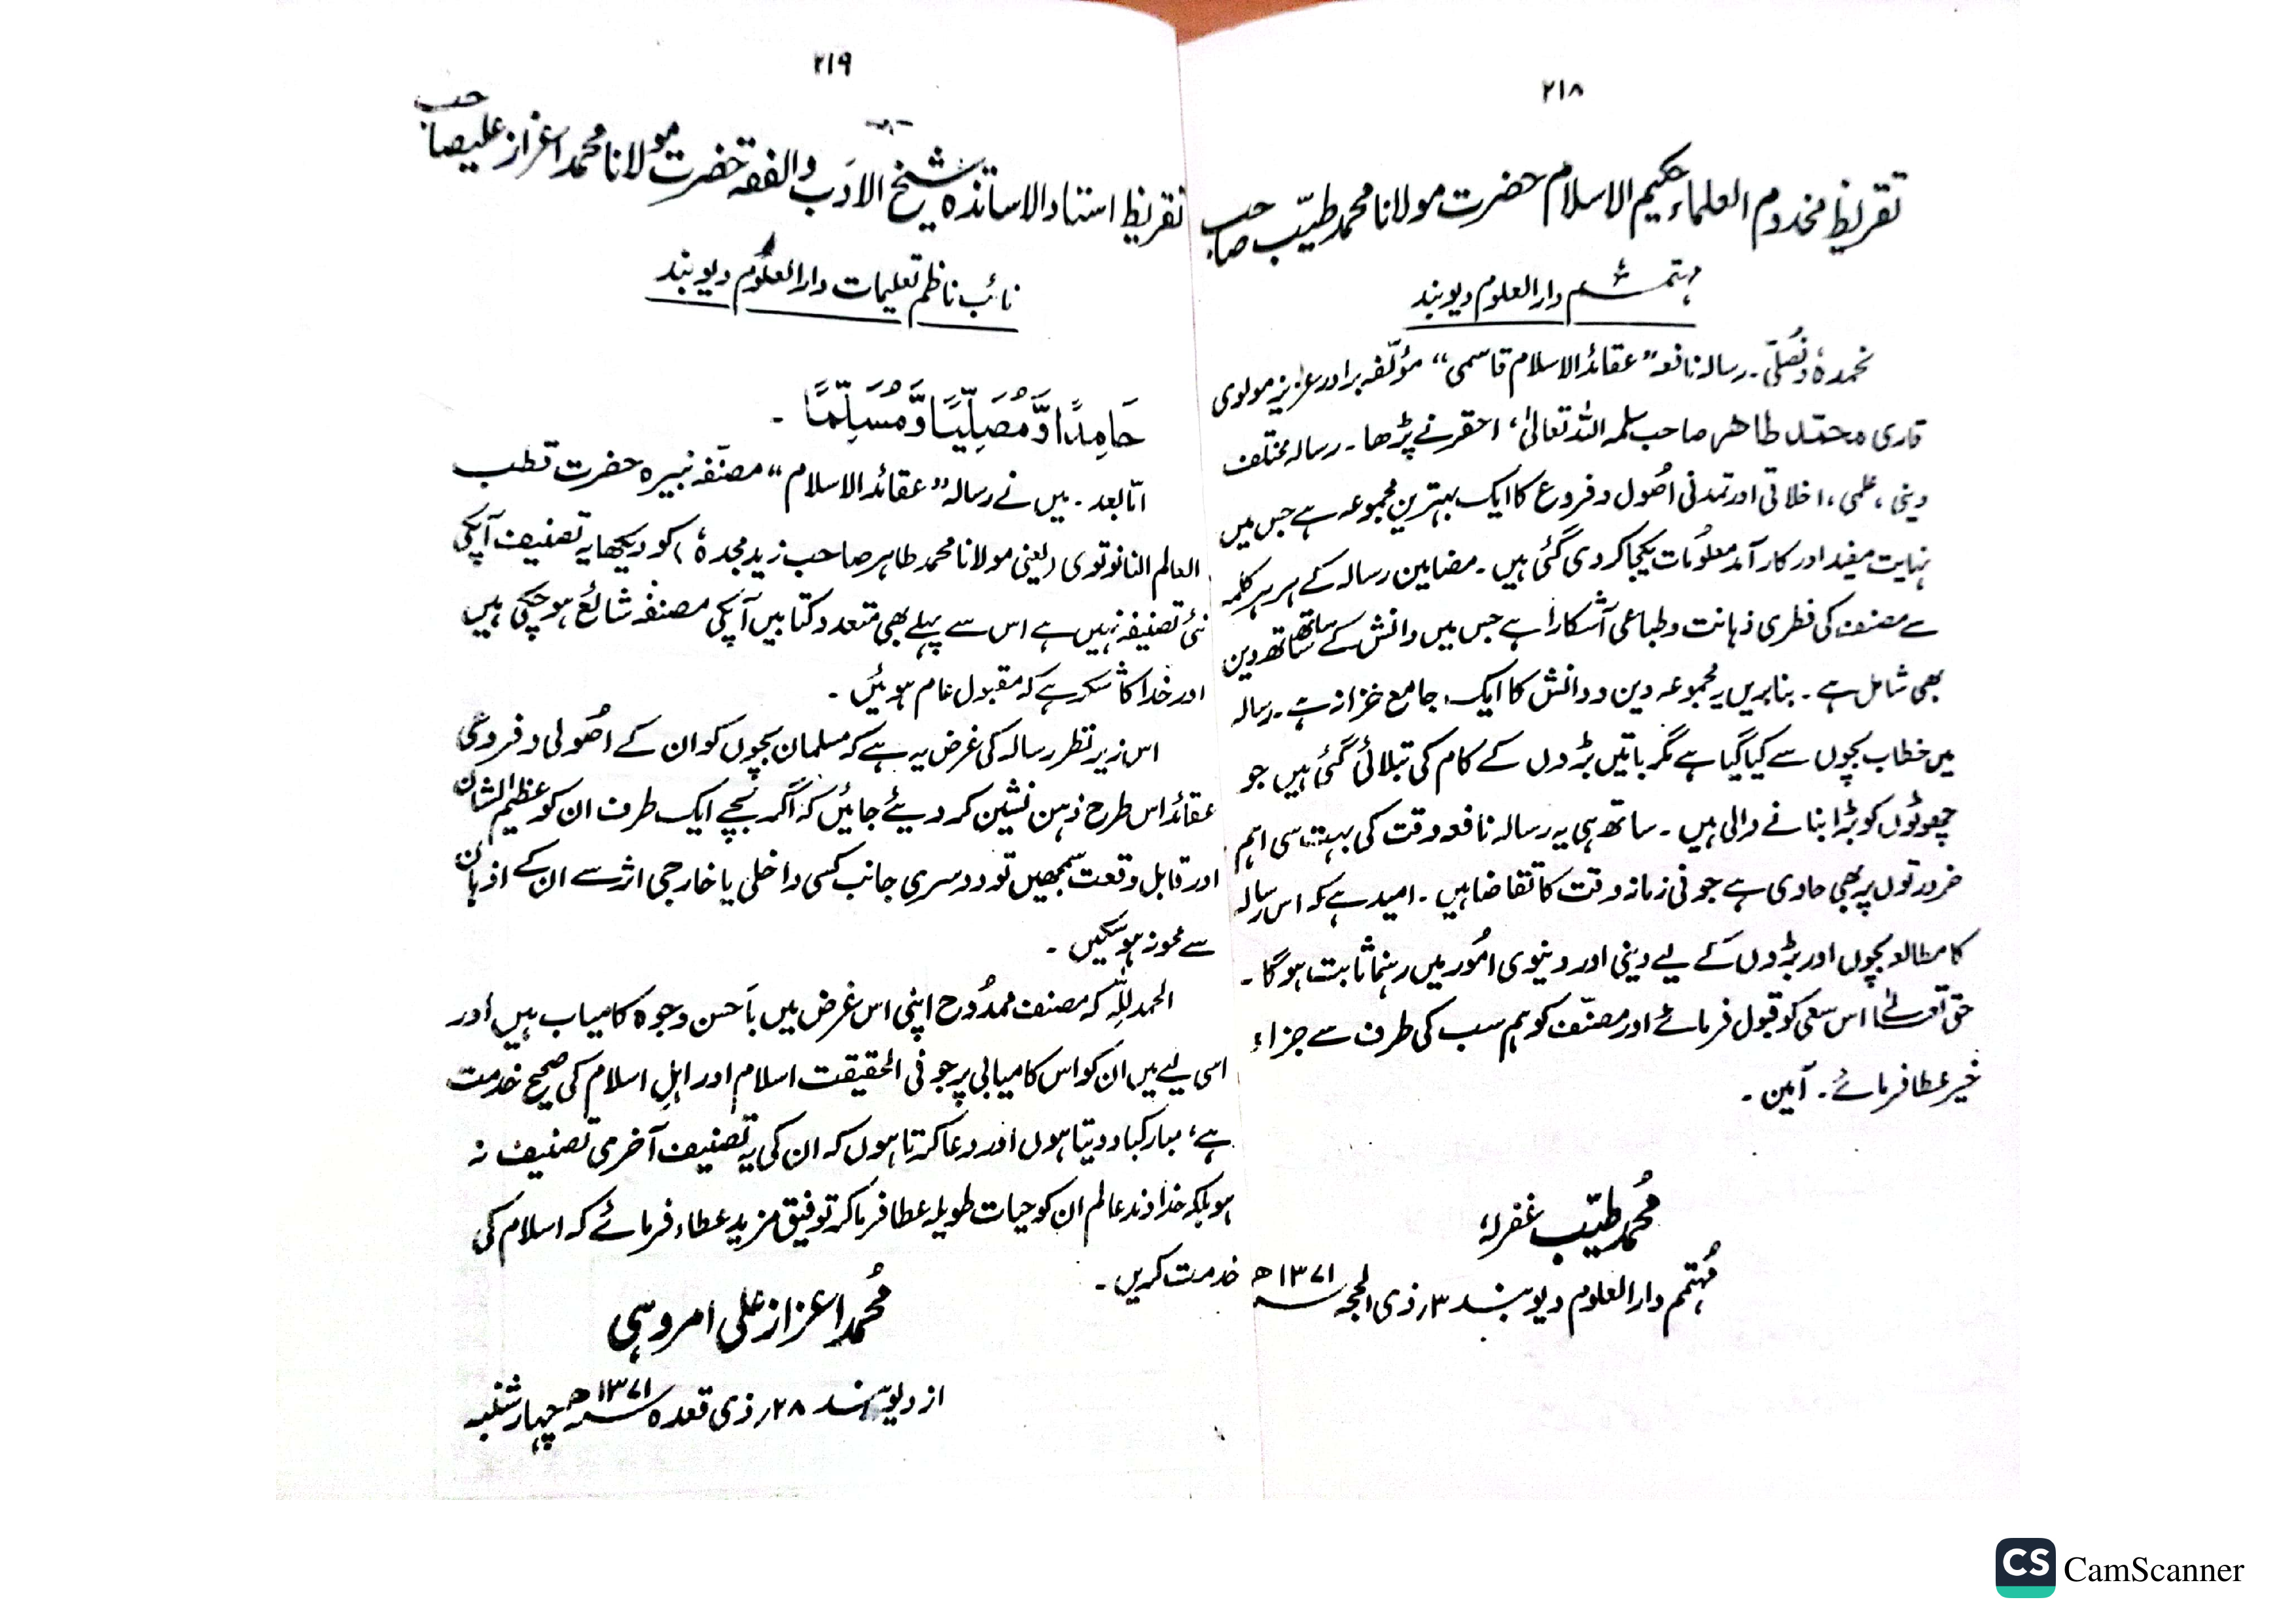 ۲۱۸
تقریظ مخدوم العلماء حکیم الاسلام حضرت مولانا محمد طیّب صاحب
مہتمم دارالعلوم دیوبند
نحمدہٗ ونُصلّی۔ رسالہ نافعہ ”عقائد الاسلام قاسمی“ مؤلّفہ برادر عزیز مولوی
قاری محمّد طاھر صاحب سلمہ اللہ تعالیٰ، احقر نے پڑھا۔ رسالہ مختلف
دینی، علمی، اخلاقی اور تمدنی اُصول و فروع کا ایک بہترین مجموعہ ہے جس میں
نہایت مفید اور کارآمد معلُومات یکجا کردی گئی ہیں۔ مضامین رسالہ کے ہر ہر کلمہ
سے مصنف کی فطری ذہانت و طباعی آشکارا ہے جس میں دانش کے ساتھ ساتھ دین
بھی شامل ہے۔ بنابریں یہ مجموعہ دین و دانش کا ایک جامع خزانہ ہے۔ رسالہ
میں خطاب بچوں سے کیا گیا ہے مگر باتیں بڑوں کے کام کی بتلائی گئی ہیں جو
چھوٹوں کو بڑا بنانے والی ہیں۔ ساتھ ہی یہ رسالہ نافعہ وقت کی بہت سی اہم
ضرورتوں پر بھی حاوی ہے جو فی زمانہ وقت کا تقاضا ہیں۔ امید ہے کہ اس رسالہ
کا مطالعہ بچوں اور بڑوں کے لیے دینی اور دنیوی امُور میں رہنما ثابت ہوگا۔
حق تعالےٰ اس سعی کو قبول فرمائے اور مصنّف کو ہم سب کی طرف سے جزاءِ
خیر عطا فرمائے۔ آمین۔
مُحمد طیّب غفرلہٗ
مُہتمم دارالعلوم دیوبند ۳؍ ذی الحجہ ۱۳۷۱ھ
۲۱۹
تقریظ استاد الاساتذہ شیخ الادَب والفقہ حضرت مولانا محمد اعزاز علیصاحب
نائب ناظم تعلیمات دارالعلُوم دیوبند
حَامِدًا وَّمُصَلِّیًا وَّمُسَلِّمًا۔
امّا بعد۔ میں نے رسالہ ”عقائد الاسلام“ مصنّفہ نبیرہ حضرت قطب
العالم النانوتوی (یعنی مولانا محمد طاہر صاحب زید مجدہٗ) کو دیکھا یہ تصنیف آپکی
نئی تصنیفہ نہیں ہے اس سے پہلے بھی متعدد کتابیں آپکی مصنفہ شائع ہوچکی ہیں
اور خدا کا شکر ہے کہ مقبول عام ہوئیں۔
اس زیر نظر رسالہ کی غرض یہ ہے کہ مسلمان بچوں کو ان کے اصُولی و فروعی
عقائد اس طرح ذہن نشین کر دیئے جائیں کہ اگر بچے ایک طرف ان کو عظیم الشان
اور قابل وقعت سمجھیں تو دوسری جانب کسی داخلی یا خارجی اثر سے ان کے اذہان
سے محو نہ ہوسکیں۔
الحمد لِلّٰہ کہ مصنف ممدُوح اپنی اس غرض میں باَحسن وجوہ کامیاب ہیں اور
اسی لیے میں ان کو اس کامیابی پر جو فی الحقیقت اسلام اور اہلِ اسلام کی صحیح خدمت
ہے، مبارکباد دیتا ہوں اور دعا کرتا ہوں کہ ان کی یہ تصنیف آخری تصنیف نہ
ہو بلکہ خداوند عالم ان کو حیات طویلہ عطا فرماکر توفیق مزید عطاء فرمائے کہ اسلام کی
خدمت کریں۔
مُحمد اعزاز علی امروہی
از دیوبند ۲۸؍ ذی قعدہ ۱۳۷۱ھ چہار شنبہ
CS CamScanner